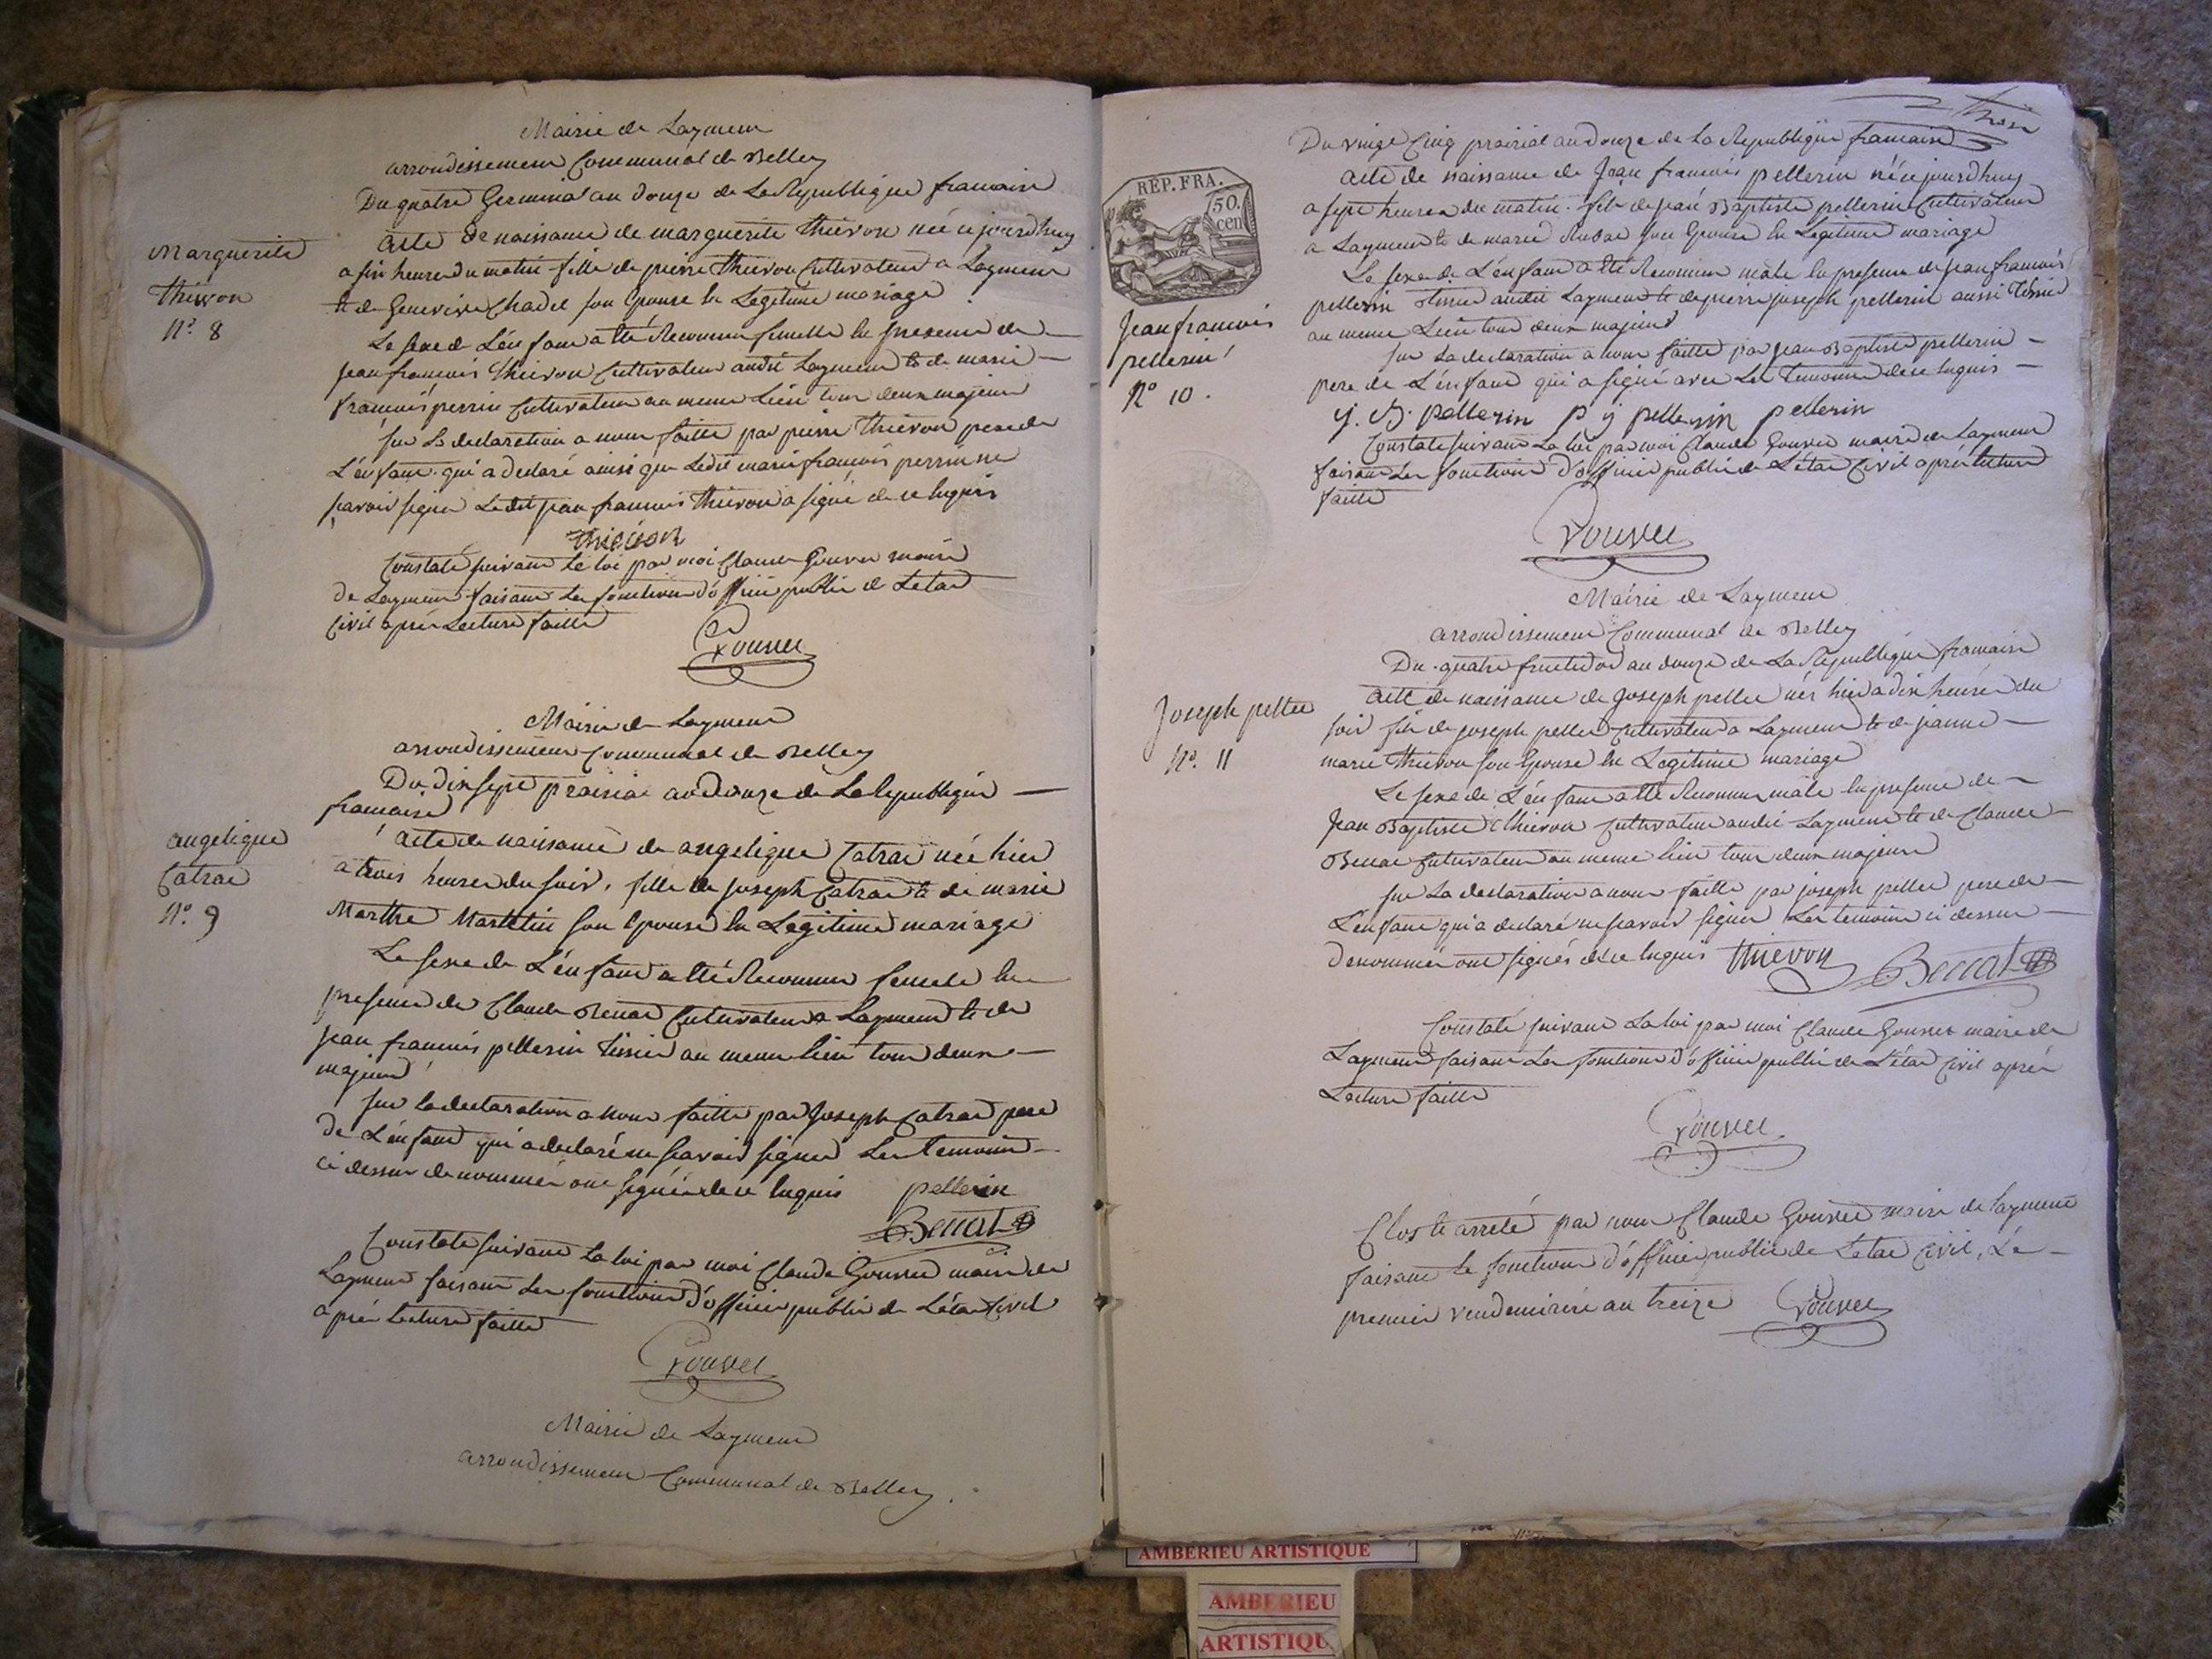 Mairie de Laymeur
arrondissement Communal de Belley
Du quatre Germinal an douze de La Republique francaise
Acte de naissance de marguerite thievon née cejourdhuy
a six heures du matin fille de pierre thievon Cultivateur a Laymeur
et de Chadel son Epouse En Legitime mariage
Le sexe de L'enfant a Eté Reconnu femelle En presence de
jean francois thievon Cultivateur audit Laymeur Et de marie
francois perrin Cultivateur au meme Lieu tous deux majeurs
sur La declaration a nous faitte par pierre thievon pere de
L'enfant qui a declaré ainsi que Ledit marie francois perrin ne
scavoir signer Ledit jean francois thievon a signé de ce Enquis
thievon
Constaté suivant La loi par moi Claude Gouvet maire
de Laymeur faisant Les fonctions d'officier public de L'etat
Civil après Lecture faitte
Gouvet
Marguerite
thievon
N° 8
Mairie de Laymeur
arrondissement Communal de Belley
Du dix sept prairial an douze de La Republique
francaise
Acte de naissance de angelique Catrat née hier
a trois heures du soir, fille de joseph Catrat et de marie
Marthe son Epouse En Legitime mariage
Le sexe de L'enfant a Eté Reconnu femele En
presence de Claude Benat Cultivateur a Laymeur Et de
jean francois pellerin tissier au meme lieu tous deux
majeurs
sur la declaration a nous faitte par Joseph Catrat pere
de L'enfant qui a declaré ne scavoir signer Les temoins
ci dessus denommés ont signés de ce Enquis pellerin
Benat
Constaté suivant La loi par moi Claude Gouvet maire de
Laymeur faisant Les fonctions d'officier public de L'état Civil
après Lecture faitte
Gouvet
angelique
Catrat
N° 9
Mairie de Laymeur
arrondissement Communal de Belley.
Du vingt Cinq prairial an douze de La Republique francaise
Acte de naissance de Jean francois pellerin né cejourdhuy
a sept heures du matin fils de jean Baptiste pellerin Cultivateur
a Laymeur Et de marie son Epouse En Legitime mariage
Le sexe de L'enfant a Eté Reconnu male En presence de jean francois
pellerin tissier audit Laymeur Et de pierre joseph pellerin aussi tissier
au meme Lieu tous deux majeurs
sur La declaration a nous faitte par Jean Baptiste pellerin
pere de L'enfant qui a signé avec Les temoins de ce Enquis
j. B. pellerin p j pellerin pellerin
Constaté suivant La loi par moi Claude Gouvet maire de Laymeur
faisant Les fonctions d'officier public de L'état Civil après lecture
faitte
Gouvet
REP. FRA.
50.
cen
Jean francois
pellerin
N° 10.
Mairie de Laymeur
arrondissement Communal de Belley
Du quatre fructidor an douze de La Republique francaise
Acte de naissance de Joseph pellet né hier a dix heures du
soir fils de joseph pellet Cultivateur a Laymeur Et de jeanne
marie thievon son Epouse En Legitime mariage
Le sexe de L'enfant a Eté Reconnu male En presence de
Jean Baptiste thievon Cultivateur audit Laymeur Et de Claude
Benat Cultivateur au meme lieu tous deux majeurs
sur La declaration a nous faitte par joseph pellet pere de
L'enfant qui a declaré ne scavoir signer Les temoins ci dessus
denommés ont signés de ce Enquis thievon Benat
Constaté suivant La loi par moi Claude Gouvet maire de
Laymeur faisant Les fonctions d'officier public de L'état Civil après
Lecture faitte
Gouvet
Joseph pellet
N° 11
Clos Et arreté par nous Claude Gouvet maire de Laymeur
faisant Les fonctions d'officier public de L'etat Civil, Le
premier vendemiere an treize Gouvet
AMBERIEU ARTISTIQUE
AMBERIEU
ARTISTIQU